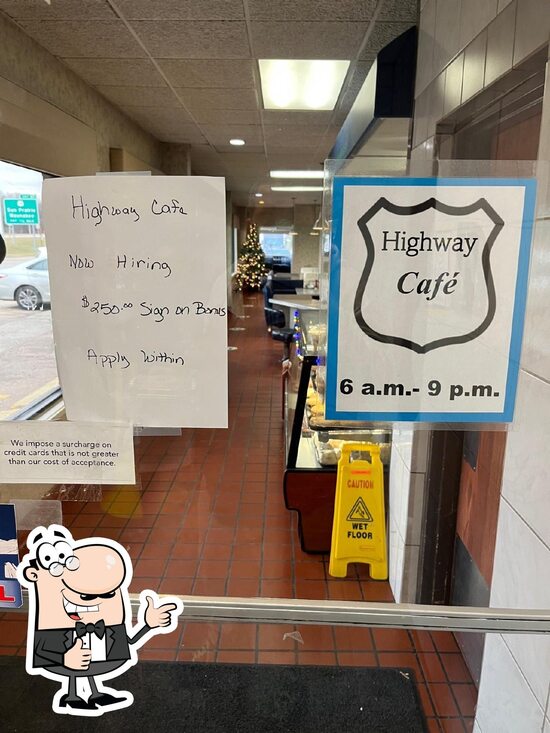 Sun Prairie
Waunakee
Highway Cafe
Now Hiring
$250.00 Sign on Bonus
Apply Within
Highway
Café
6 a.m.- 9 p.m.
We impose a surcharge on
credit cards that is not greater
than our cost of acceptance.
CAUTION
WET
FLOOR